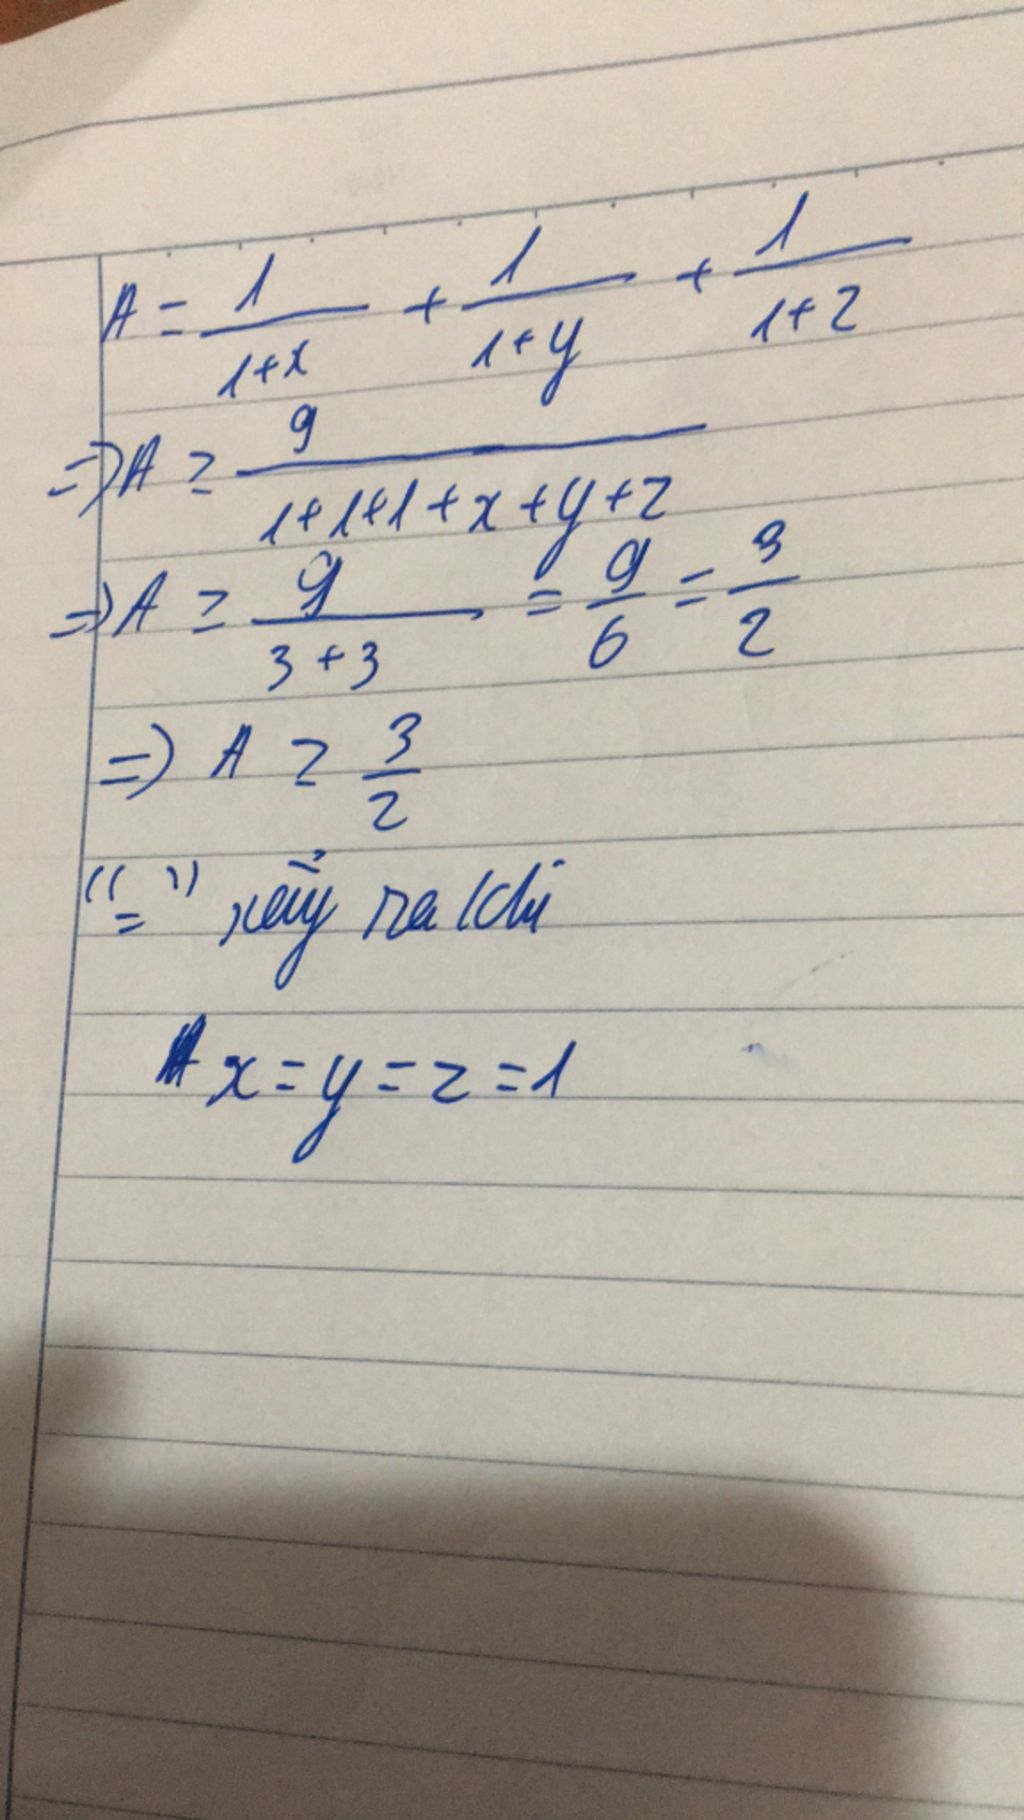 A = 1/(1+x) + 1/(1+y) + 1/(1+z)
=> A ≥ 9/(1+1+1+x+y+z)
=> A ≥ 9/(3+3) = 9/6 = 3/2
=> A ≥ 3/2
"=" xảy ra khi
x = y = z = 1